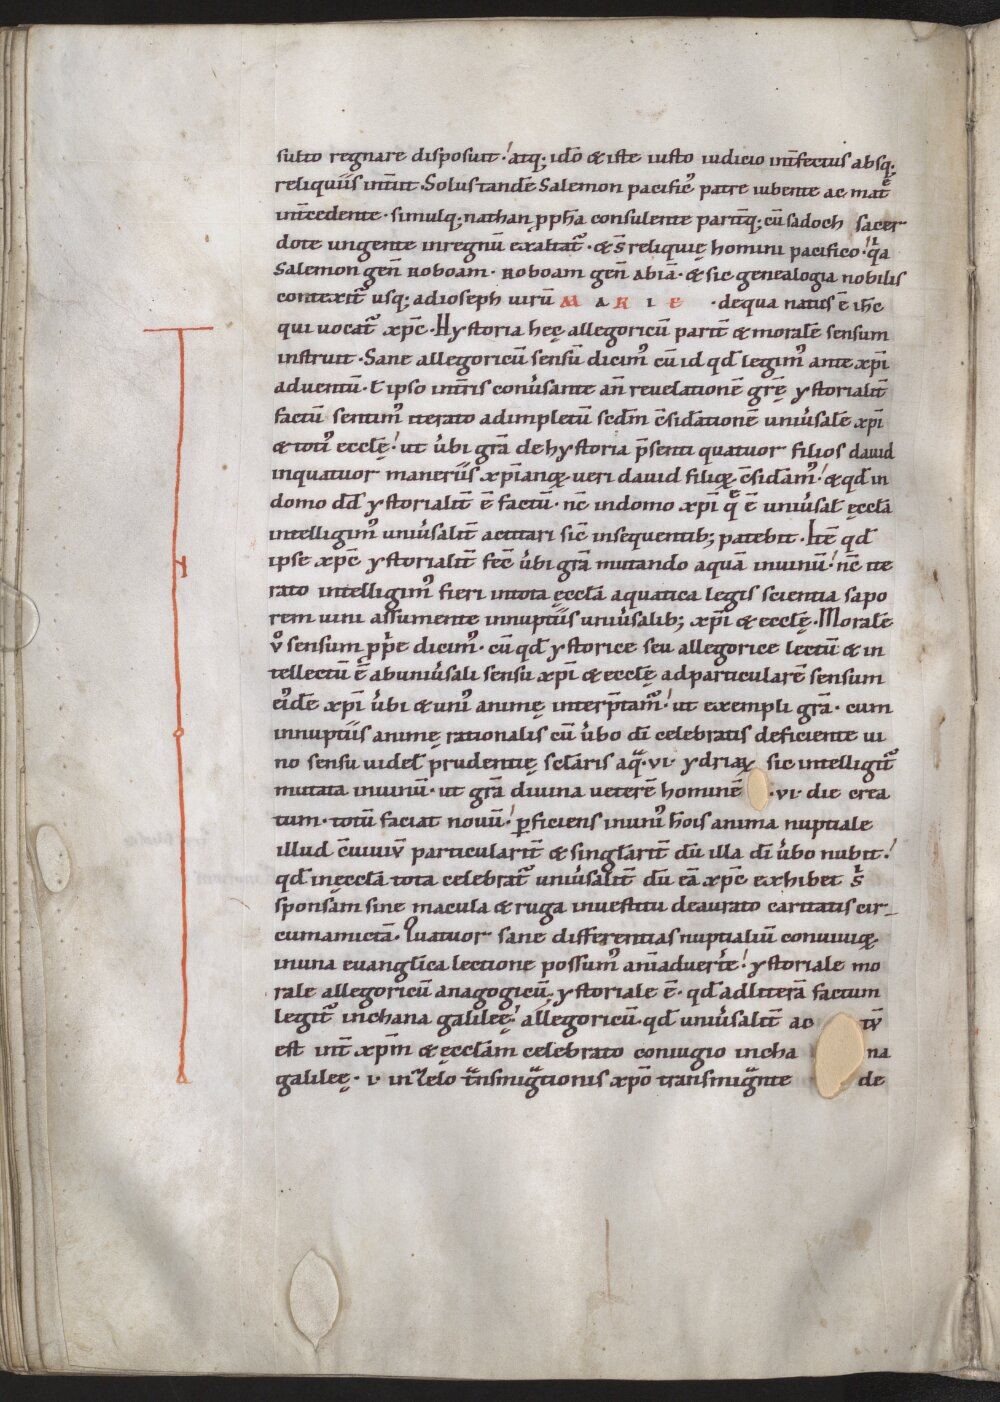 subito regnare disposuit· atq; idō & iste iusto iudicio int̄fectus absq;
reliquiis int̄iit· Solus tandē Salemon pacific᷒ patre iubente ac mat̄e
int̄cedente· simulq; nathan pph̄a consulente parit̄q; cū sadoch sacer
dote ungente inregnū exaltat᷒· & s̄ reliquię homini pacifico· q̄a
Salemon gen̄ Roboam· Roboam gen̄ abiā· & sic genealogia nobilis
contexit᷒ usq; adioseph uirū MARIE · dequa natus ē ih̄c
qui uocat᷒ xp̄c· Hystoria hęc allegoricū parit̄ & moralē sensum
instruit· Sane allegoricū sensū dicim᷒ cū id qd̄ legim᷒ ante xp̄i
aduentū· t̄ ipso int̄ris conūsante an̄ reuelationē grē ystorialit̄
factū sentim᷒ iterato adimpletū scdm̄ c̄sidationē uniūsalē xp̄i
& toti᷒ eccłę· ut ūbi grā de hystoria p̄senti quatuor filios dauid
inquatuor maneriis xp̄ianoꝝ ueri dauid filioꝝ c̄sidam᷒· & qd̄ in
domo dd̄ ystorialit̄ ē factū· nc̄ indomo xp̄i q̄ ē uniūsal̄ ęccła
intelligim᷒ uniūsalit̄ actitari sic̄ insequentib; patebit· Itē qd̄
ipse xp̄c ystorialit̄ fec̄ ūbi grā mutando aquā inuinū· nc̄ ite
rato intelligim᷒ fieri intota ęccła aquatica legis scientia sapo
rem uini assumente innuptiis uniūsalib; xp̄i & eccłę· Moralē
v̊ sensum pp̄e dicim᷒· cū qd̄ ystorice seu allegorice lectū & in
tellectū ē abuniūsali sensu xp̄i & eccłę adparticularē sensum
ei᷒dē xp̄i ūbi & uni᷒ animę interp̄tam᷒· ut exempli grā· cum
innuptiis animę rationalis cū ūbo dī celebratis deficiente ui
no sensu uideł prudentię scłaris aq̄ ·vi· ydriaꝝ sic intelligit᷒
mutata inuinū· ut grā diuina ueterē hominē ·vi· die crea
tum· totū faciat nouū· ꝑficiens inuni᷒ hōis anima nuptiale
illud c̄uiuiū particularit̄ & singłarit̄ dū illa dī ūbo nubit·
qd̄ inęccła tota celebrat᷒ uniūsalit̄ dū eā xp̄c exhibet s̄
sponsam sine macula & ruga inuestitu deaurato caritatis cir
cumamictā· Quatuor sane differentias nuptialiū conuiuioꝝ
inuna euangłica lectione possum᷒ anīaduert̄e· ystoriale mo
rale allegoricū anagogicū· ystoriale ē· qd̄ adlitterā factum
legit᷒ inchana galileę· allegoricū· qd̄ uniūsalit̄ ac tū
est int̄ xp̄m & ęccłam celebrato coniugio incha na
galileę· ·i· inzelo t̄nsmig̃tionis xp̄o transmig̃nte de